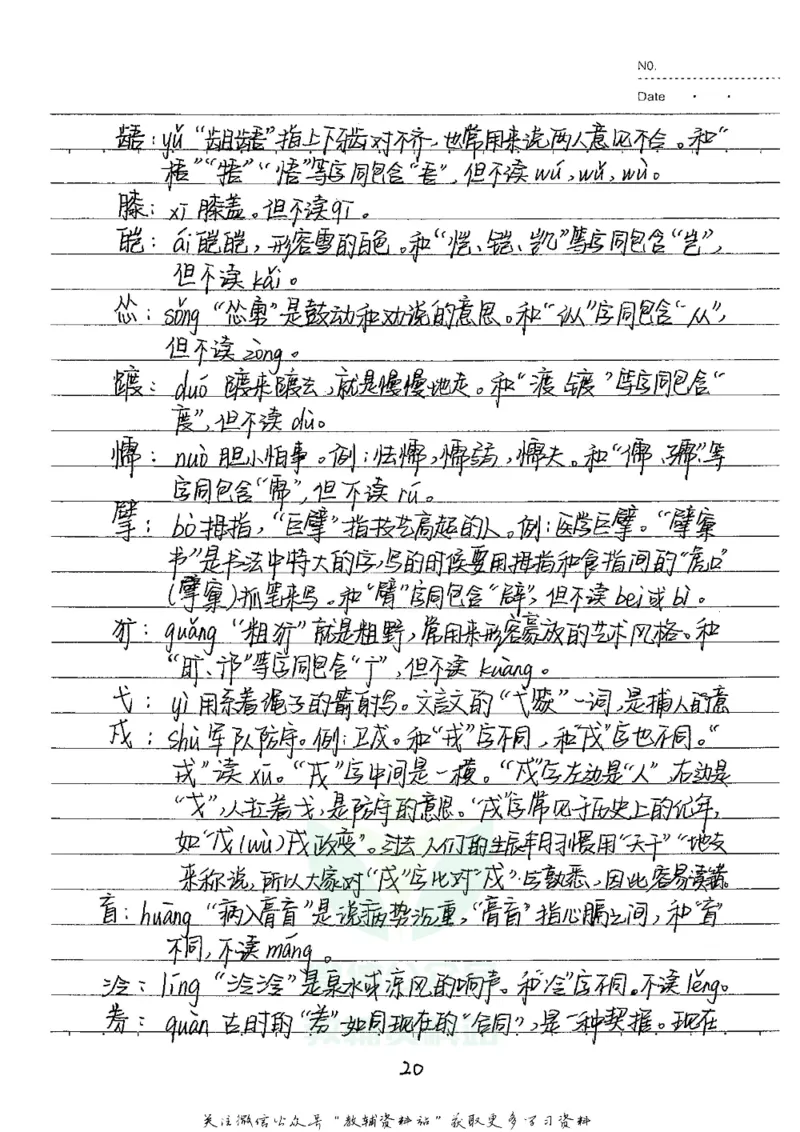 NO.
Date
龉：yǔ “龃龉”指上下牙齿对不齐，也常用来说两人意见不合。和“
梧”“捂”“悟”等字同包含“吾”，但不读wú，wǔ，wù。
膝：xī 膝盖。但不读qī。
皑：ái 皑皑，形容雪的白色。和“恺、铠、凯”等字同包含“岂”，
但不读kǎi。
怂：sǒng “怂恿”是鼓动和劝说的意思。和“纵”字同包含“从”，
但不读zòng。
踱：duó 踱来踱去，就是慢慢地走。和“渡、镀”等字同包含“
度”，但不读dù。
懦：nuò 胆小怕事。例：怯懦，懦弱，懦夫。和“儒、孺”等
字同包含“需”，但不读rú。
擘：bò 拇指，“巨擘”指技艺高超的人。例：医学巨擘。“擘窠
书”是书法中特大的字，写的时候要用拇指和食指间的“虎口”
（擘窠）抓笔来写。和“臂”字同包含“辟”，但不读bei或bì。
犷：guǎng “粗犷”就是粗野，常用来形容豪放的艺术风格。和
“旷、邝”等字同包含“广”，但不读kuàng。
弋：yì 用系着绳子的箭射鸟。文言文的“弋猎”一词，是捕人的意
戍：shù 军队防守。例：卫戍。和“戎”字不同，和“戊”字也不同。“
戌”读xū。“戌”字中间是一横。“戍”字左边是“人”，右边是
“戈”，人拉着戈，是防守的意思。“戌”字常见于历史上的纪年，
如“戊（wù）戌政变”。过去人们的生辰年月习惯用“天干”“地支
来称说，所以大家对“戌”字比对“戍”字熟悉，因此容易读错。
肓：huāng “病入膏肓”是说病势沉重，“膏肓”指心膈之间，和“盲”
不同，不读máng。
泠：líng “泠泠”是泉水或凉风的响声。和“冷”字不同。不读lěng。
券：quàn 古时的“券”如同现在的“合同”，是一种契据。现在
20
关注微信公众号“教辅资料站”获取更多学习资料